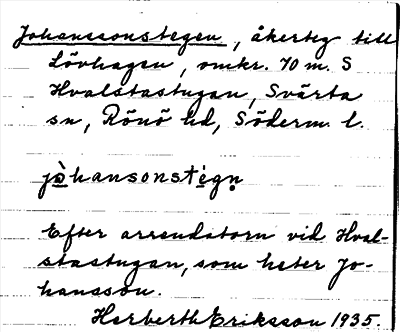 Johanssonstegen, åkerteg till
Lövhagen, omkr. 70 m. S
Hvalstastugan, Svärta
sn, Rönö hd, Söderm. l.
jòhansonstégn̥
Efter arrendatorn vid Hval-
stastugan, som heter Jo-
hansson.
Herberth Eriksson 1935.